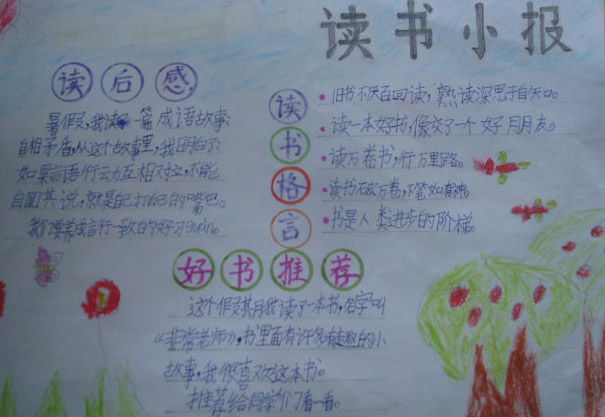 读书小报
读后感
暑假,我读一篇成语故事
自相矛盾,从这个故事里,我明白了
如果言语行动互相对立,不能
自圆其说,就是自己打自己的嘴巴。
我要养成言行一致的好习guàn。
读书格言
旧书不厌百回读,熟读深思子自知。
读一本好书,像交了一个好朋友。
读万卷书,行万里路。
读书破万卷,下笔如有神。
书是人类进步的阶梯。
好书推荐
这个假期我读了一本书,名字叫
《非常老师》,书里面有许多有趣的小
故事,我很喜欢这本书。
推荐给同学们看一看。